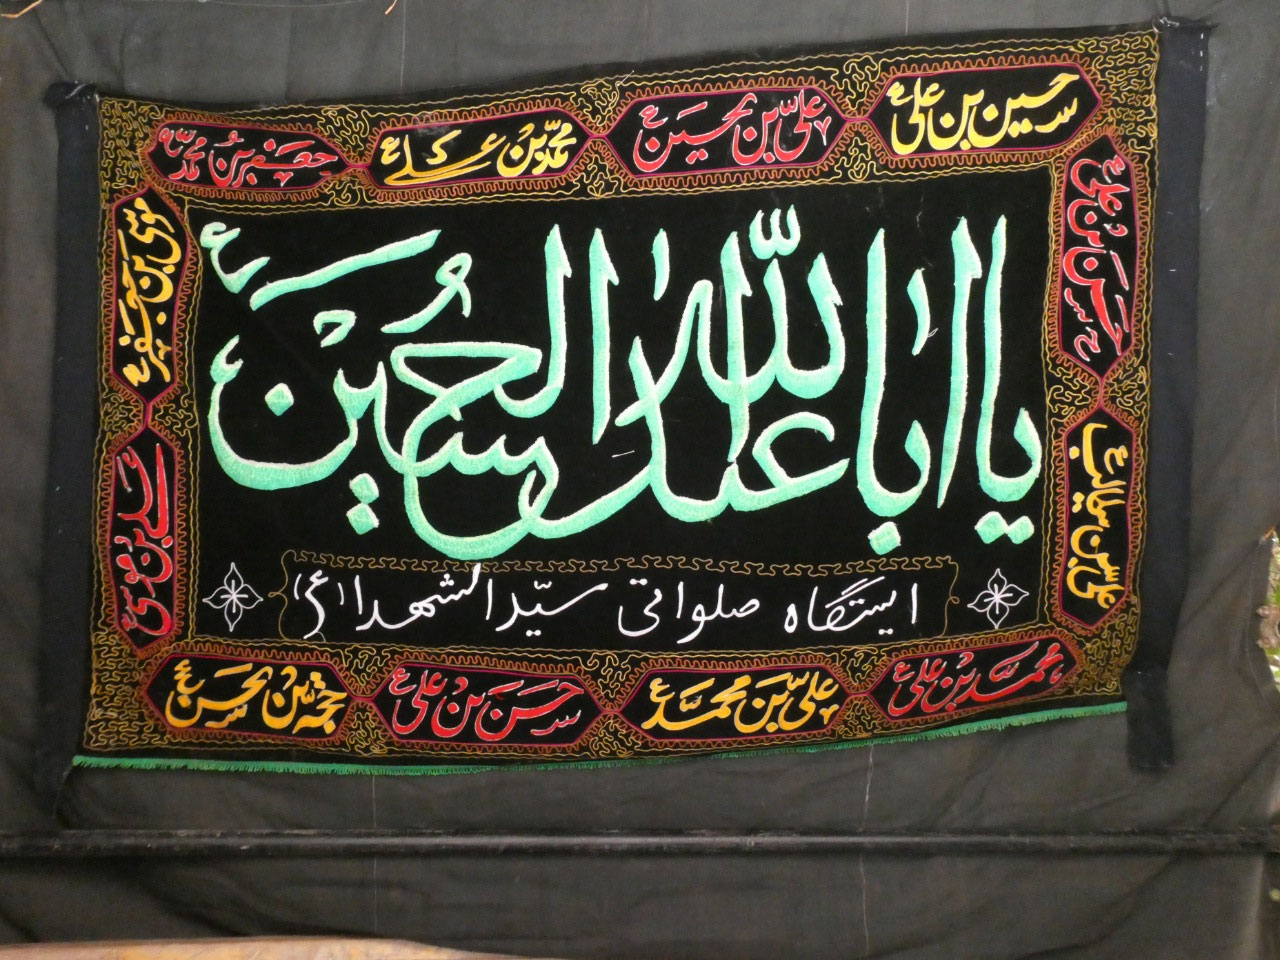 حسین بن علی ع
علی بن الحسین ع
محمد بن علی ع
جعفر بن محمد ع
حسن بن علی ع
علی بن ابیطالب ع
موسی بن جعفر ع
علی بن موسی ع
یا ابا عبدالله الحسین ع
ایستگاه صلواتی سیّد الشهدا (ع)
محمد بن علی ع
علی بن محمد ع
حسن بن علی ع
حجه بن الحسن ع